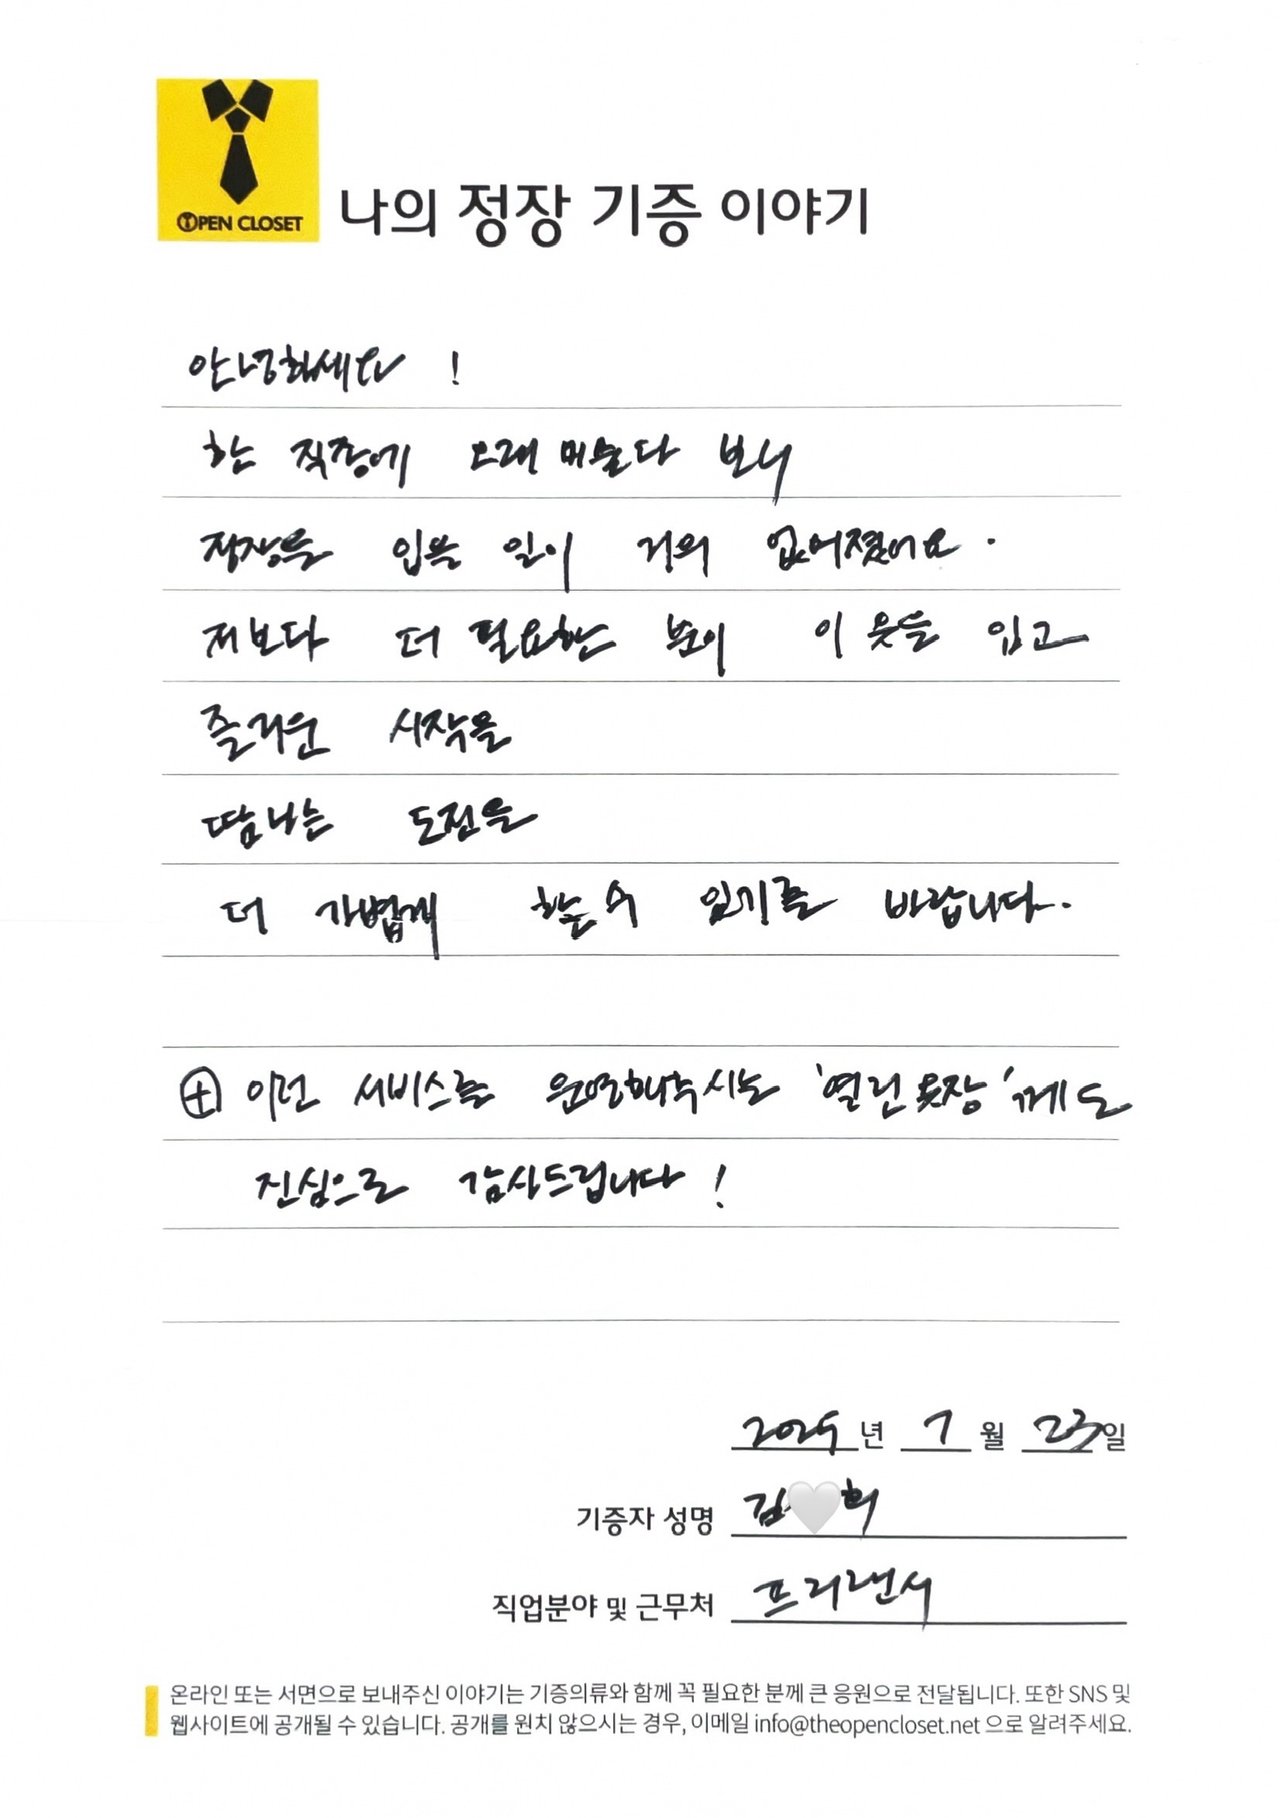 OPEN CLOSET
나의 정장 기증 이야기
안녕하세요 !
한 직장에 오래 머물다 보니
정장을 입을 일이 거의 없어졌어요.
저보다 더 필요한 분이 이 옷을 입고
즐거운 시작을
땀나는 도전을
더 가볍게 할 수 있기를 바랍니다.
⊕ 이런 서비스를 운영해주시는 '열린옷장'께도
진심으로 감사드립니다 !
2025년 7월 23일
기증자 성명 김🤍희
직업분야 및 근무처 프리랜서
온라인 또는 서면으로 보내주신 이야기는 기증의류와 함께 꼭 필요한 분께 큰 응원으로 전달됩니다. 또한 SNS 및
웹사이트에 공개될 수 있습니다. 공개를 원치 않으시는 경우, 이메일 info@theopencloset.net 으로 알려주세요.